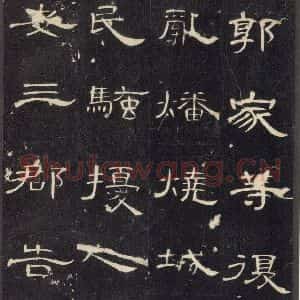 郭家等復
亂燔燒城
民騷擾人
裹三郡告
Shufawang.CN